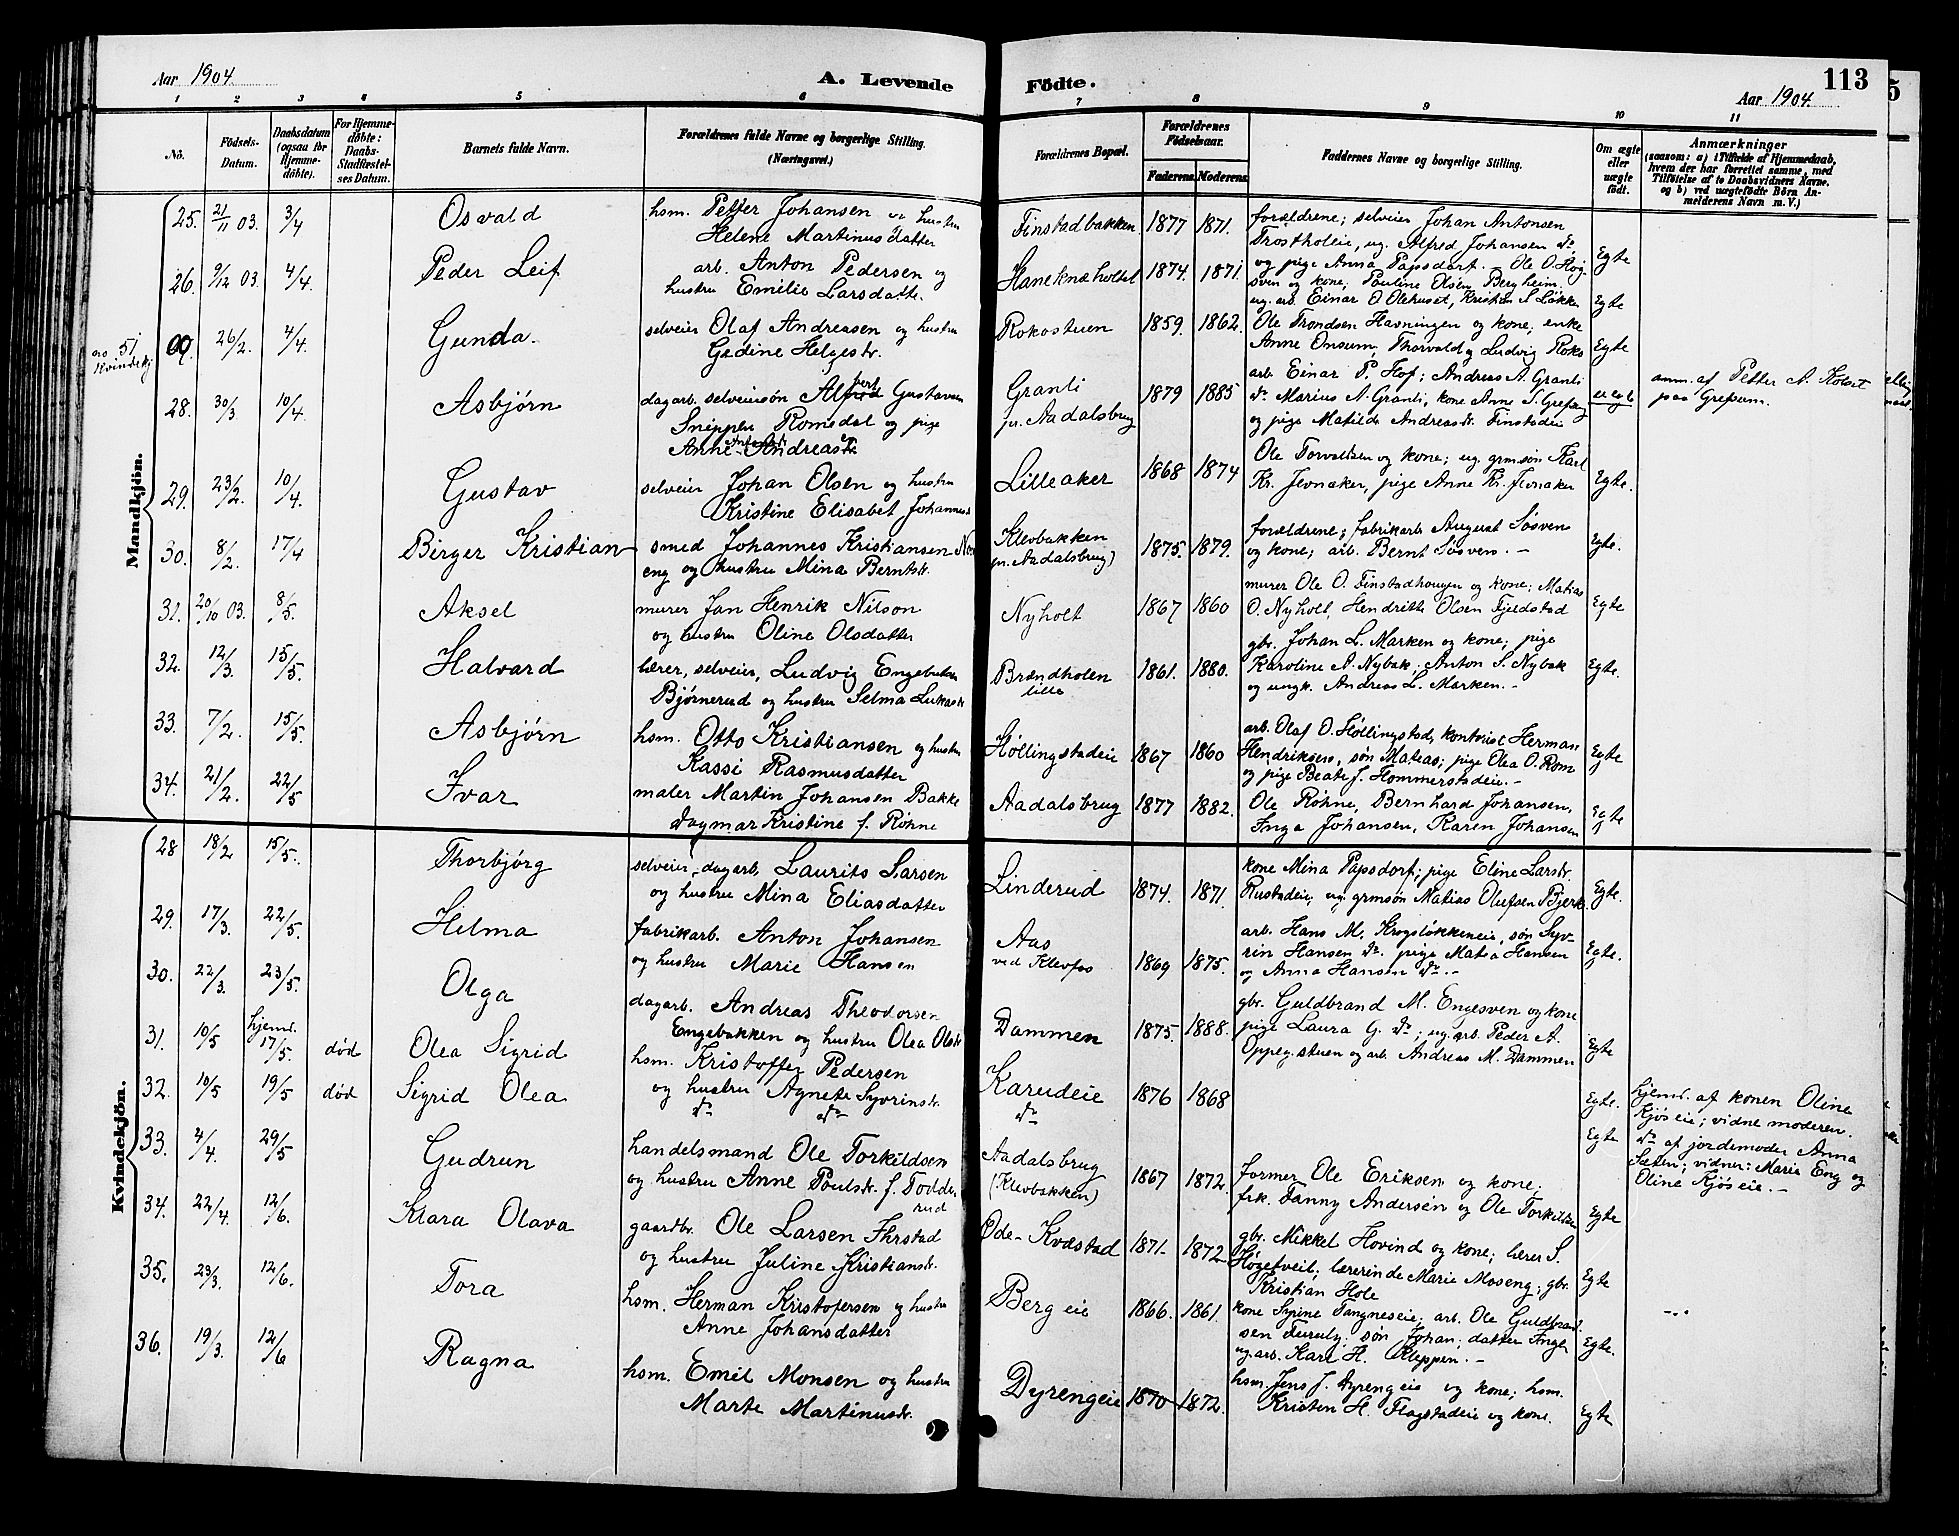 Aar 1904. A. Levende Födte. Aar 1904. 113
1 2 3 4 5 6 7 8 9 10 11
No. Födsels-Datum. Daabsdatum (ogsaa for Hjemme-döbte). For Hjemme-döbte: Daabs-Stadfæstel-ses Datum. Barnets fulde Navn. Forældrenes fulde Navne og borgerlige Stilling. (Næringsvei.) Forældrenes Bopæl. Forældrenes Födselsaar. Faderens. Moderens. Faddernes Navne og borgerlige Stilling. Om ægte eller uægte födt. Anmærkninger
(saasom: a) i Tilfælde af Hjemmedaab,
hvem der har forrettet samme, med
Tilföielse af to Daabsvidners Navne,
og b) ved uægtefödte Börn An-
melderens Navn m. V.)
Mandkjön.
25. 21/11 03. 3/4 Osvald hsm. Petter Johansen og hustru
Helene Martinusdatter
Finstadbakken 1877 1871. forældrene; selveier Johan Antonsen
Trostholeie, ug. Alfred Johansen do
og pige Anna Papsdorf. Egte
26. 9/12 03. 4/4. Peder Leif arb. Anton Pedersen og
hustru Emilie Larsdatter.
Haneknæholtet 1874. 1871. Ole O. Høg-
sven og kone; Pauline Olsen Bergheim.
ug. arb. Einar O. Olehuset, Kristian S. Løkke Egte
no 51 Kvindekj.
26/2. 4/4. Gunda. selveier Olaf Andreasen og hustru
Gedine Helgestr.
Rokostuen 1859. 1862. Ole Trondsen Havningen og kone; enke
Anne Onsum, Thorvald og Ludvig Roko Egte
28. 30/3 10/4. Asbjørn dagarb. selveiersøn Alfred Gustavsen
Sneppen Romsdal og pige
Anne Andreasdr
Granli
pr. Aadalsbrug 1879 1885 arb. Einar P. Hof; Andreas A. Granli
do Marius A. Granli, kone Anne S. Grefsrg
og pige Matilde Andreasdr. Finstadeie uegte anm. af Petter A. Kolset
paa Grefsum.
29. 23/2. 10/4. Gustav selveier Johan Olsen og hustru
Kristine Elisabet Johannesd
Lilleaker 1868 1874 Ole Torvaldsen og kone; ug. grmsøn Karl
Kr. Jevnaker, pige Anne Kr. Jevnaker Egte.
30. 8/2. 17/4 Birger Kristian smed Johannes Kristiansen Nor
eng og hustru Mina Berntsdr.
Klevbakken
pr. Aadalsbrug) 1875. 1879. forældrene; fabrikarb. August Søsven
og kone; arb. Bernt Søsven. – Egte.
31. 20/10 03. 8/5. Aksel murer Jan Henrik Nilson
og hustru Oline Olsdatter
Nyholt 1867 1860 murer Ole O. Finstadhaugen og kone; Matias
O. Nyholt, Hendrikke Olsen Fjeldstad Egte
32. 12/3. 15/5. Halvard lærer, selveier, Ludvig Engebretsen
Bjørnerud og hustru Selma Lukasdr
Brændholen
lille 1861. 1880. gbr. Johan L. Marken og kone; pige
Karoline A. Nybak; Anton S. Nybak
og ungk. Andreas L. Marken. – Egte.
33. 7/2. 15/5. Asbjørn hsm. Otto Kristiansen og hustru
Kassi Rasmusdatter
Høllingstadeie 1867 1860 arb. Olaf O. Høllingstad, kontorist Herman
Hendriksen, søn Matias; pige Olea O. Rom
og pige Beate J. Hommerstadeie. – Egte
34. 21/2. 22/5 Ivar maler Martin Johansen Bakke
Dagmar Kristine f. Røhne
Aadalsbrug 1877 1882. Ole Røhne, Bernhard Johansen,
Inga Johansen, Karen Johansen Egte
Kvindekjön.
28 18/2 15/5. Thorbjørg selveier, dagarb. Laurits Larsen
og hustru Mina Eliasdatter
Linderud 1874. 1871. kone Mina Papsdorf; pige Eline Larsdr.
Rustadeie, ug. grmsøn Matias Olufsen Bjerk. Egte.
29. 17/3. 22/5. Helma fabrikarb. Anton Johansen
og hustru Marie Hansen
Aas
ved Klevfos 1869 1875. arb. Hans M. Krogsløkkeneie, søn Syv-
rin Hansen do. pige Matea Hansen
og Anna Hansen do. – Egte.
30. 22/3. 23/5. Olga dagarb. Andreas Theodorsen
Engebakken og hustru Olea Olsdr
Dammen 1875. 1888. gbr. Guldbrand M. Engesven og kone
pige Laura G. do; ug. arb. Peder A.
Oppegstuen og arb. Andreas M. Dammen Egte
31. 10/5 hjemd. 17/5. død Olea Sigrid hsm. Kristoffer Pedersen
og hustru Agnete Syvrinsdr.
Karudeie 1876 1868 Egte. hjemd. af konen Oline
Kjøseie; vidne moderen.
32. 10/5 19/5 død Sigrid Olea do do do Egte do af jordemoder Anna
Sæten; vidner: Marie Eng og
Oline Kjøseie. –
33. 4/4. 29/5 Gudrun handelsmand Ole Torkildsen
og hustru Anne Poulsdr. f. Todde-
rud
Aadalsbrug
(Klevbakken) 1867 1872. former Ole Eriksen og kone;
frk. Fanny Andersen og Ole Torkildsen Egte
34. 22/4. 12/6. Klara Olava gaardbr. Ole Larsen Ihrstad
og hustru Juline Kristiansdr.
Øde-Kvæstad 1871. 1872 gbr. Mikkel Hovind og kone; lærer S.
Høgetveit; lærerinde Marie Moseng; gbr.
Kristian Hole Egte
35. 23/3. 12/6. Tora hsm. Herman Kristofersen og hustru
Anne Johansdatter
Berg eie 1866. 1861. kone Syrine Tangneseie; arb. Ole Guldbrand-
sen Furuly; søn Johan; datter Inga
ug. arb. Karl H. Kleppen. – Egte.
36. 19/3. 12/6 Ragna hsm. Emil Monsen og hustru
Marte Martinusdr.
Dyrengeie 1870 1872. hsm Jens J. Dyrengeie og kone; hsm.
Kristen H. Flagstadeie og kone. Egte